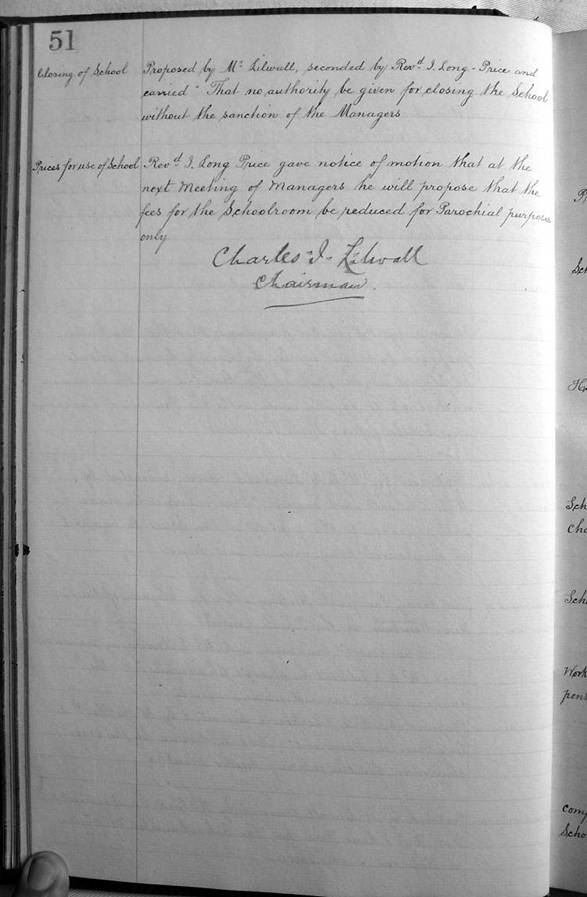 51
Closing of School
Proposed by Mr. Lilwall, seconded by Revd. J. Long-Price and
carried "That no authority be given for closing the School
without the sanction of the Managers
Prices for use of School
Revd. J. Long Price gave notice of motion that at the
next Meeting of Managers he will propose that the
fees for the Schoolroom be reduced for Parochial purposes
only
Charles J. Lilwall
Chairman.
Sch
Sch
Work
pens
comp
Scho